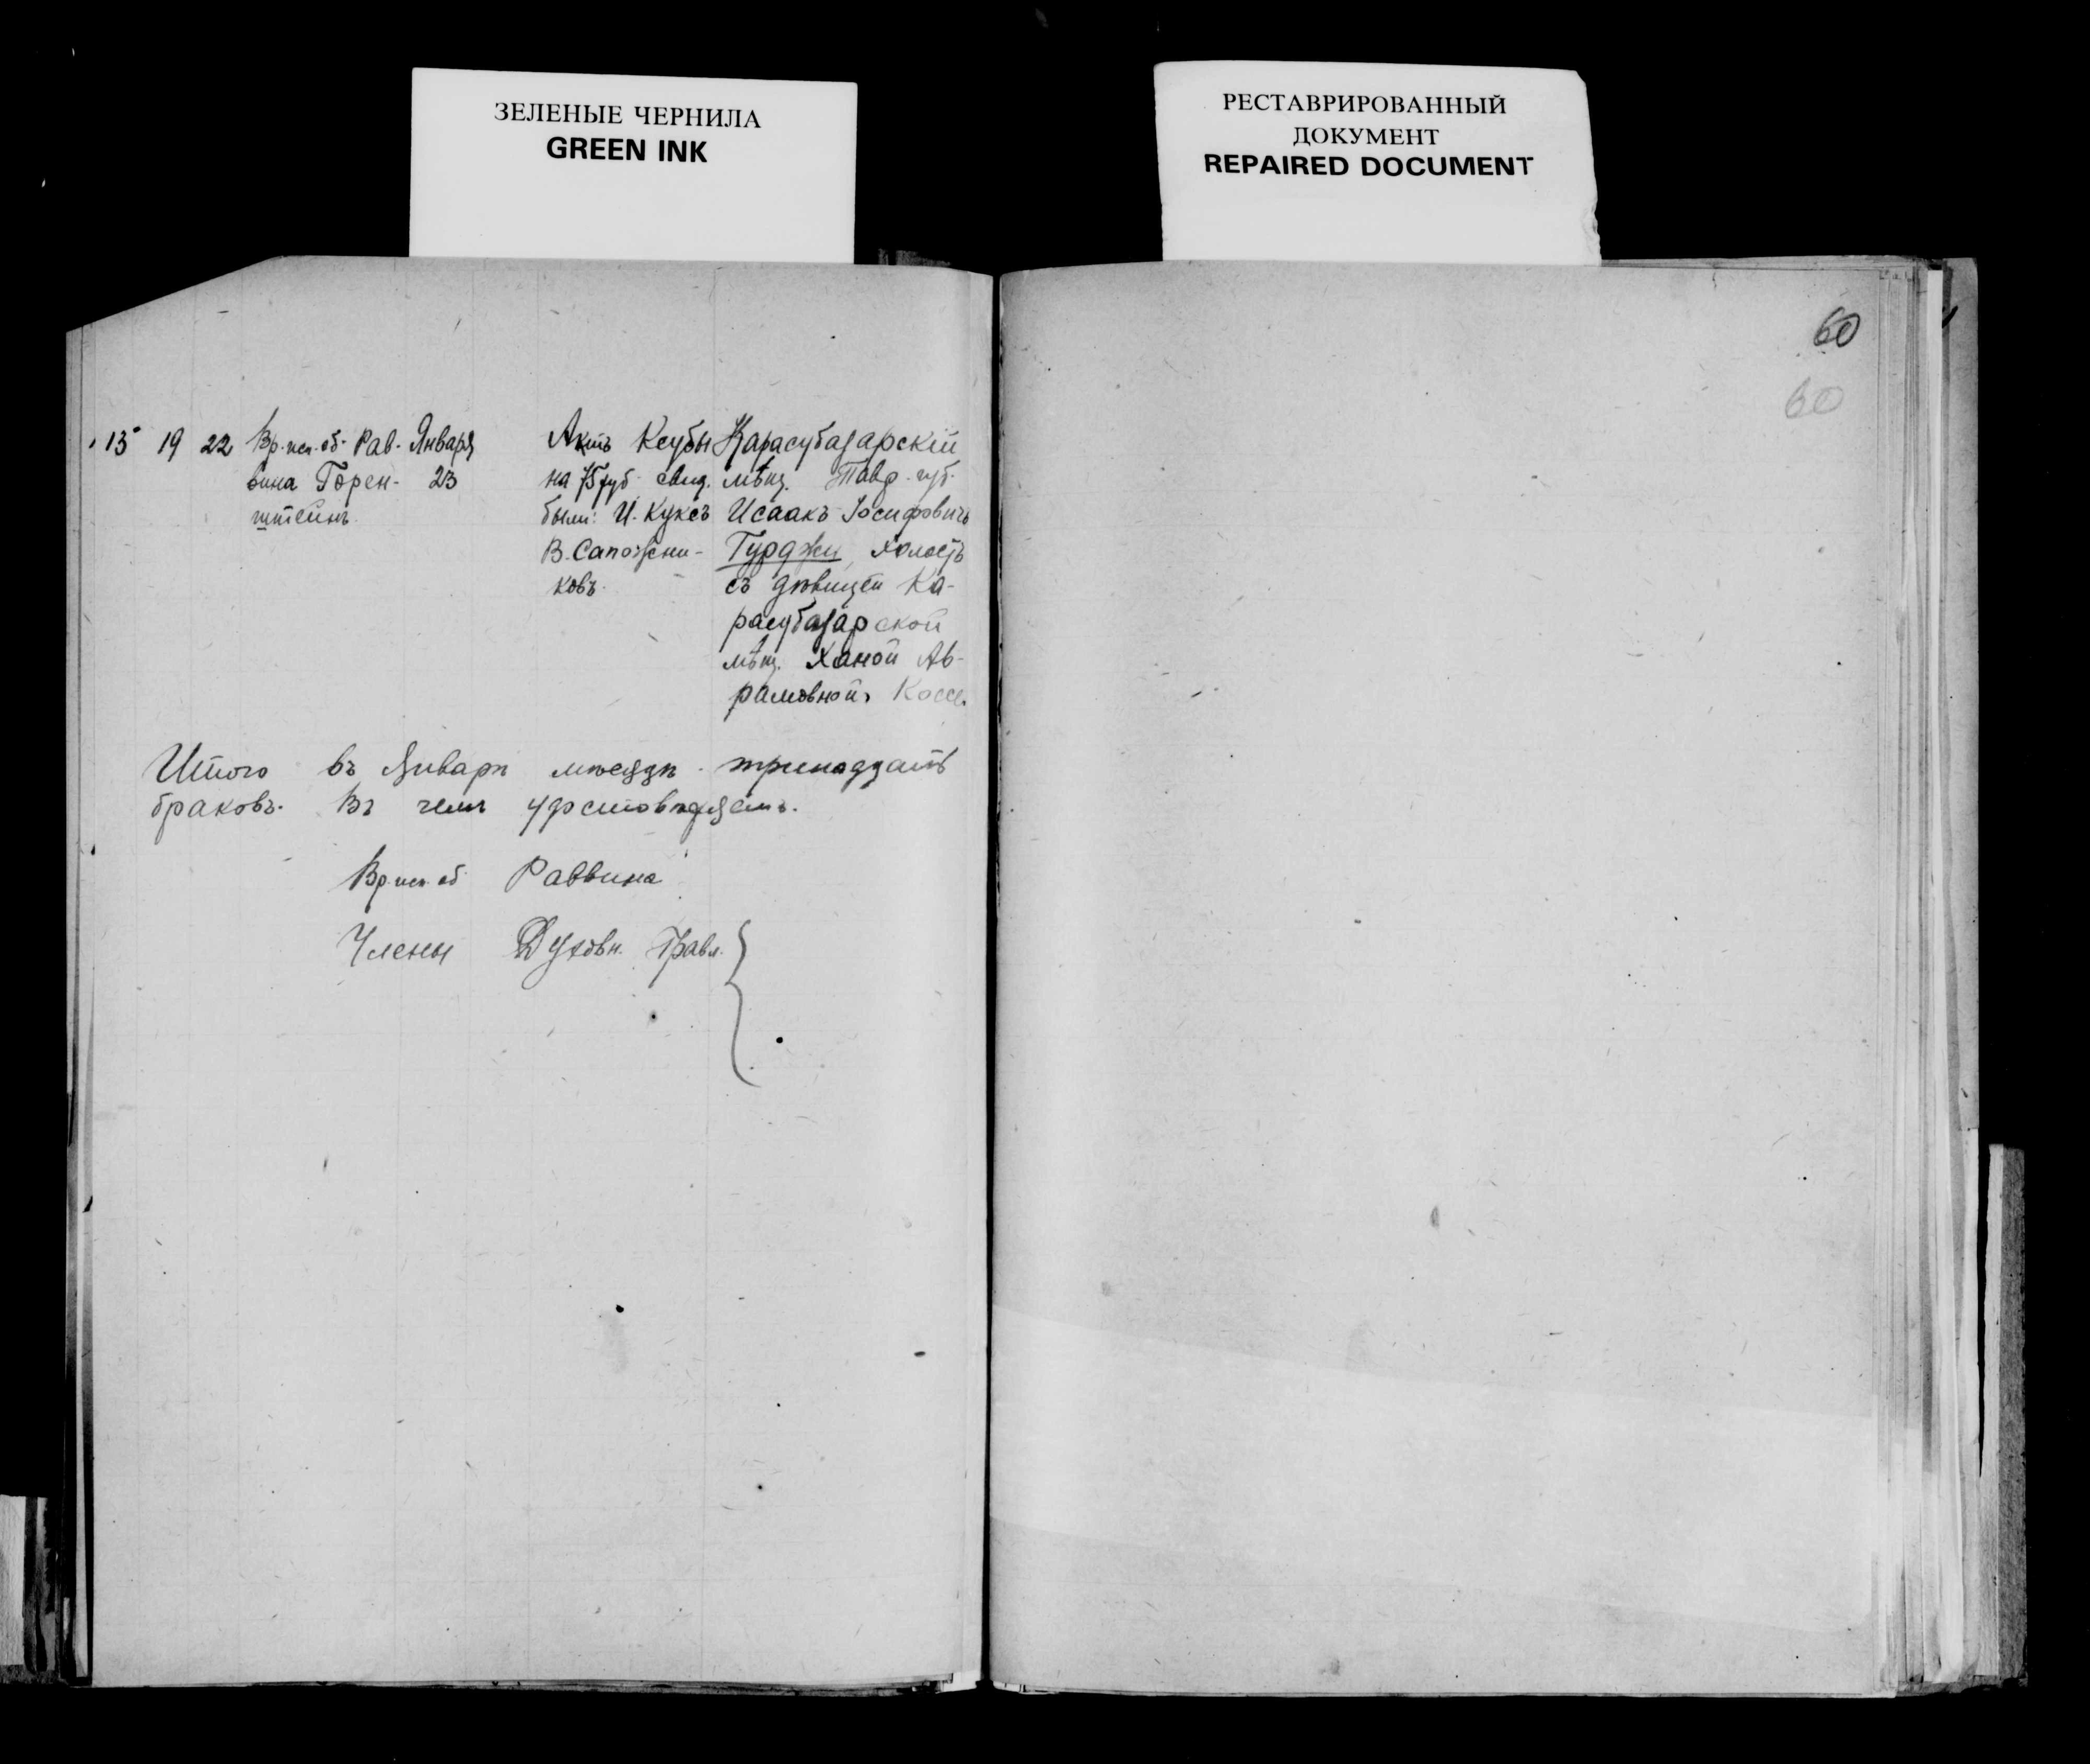 ЗЕЛЕНЫЕ ЧЕРНИЛА
GREEN INK
РЕСТАВРИРОВАННЫЙ
ДОКУМЕНТ
REPAIRED DOCUMENT
60
60
13 19 22 Вр. исп. об. Рав-
вина Горен-
штейнъ.
Января
23
Актъ Ксубы
на 75 руб свид.
были: И. Куксъ
В. Сапожни-
ковъ.
Карасубазарскій
мѣщ. Тавр. губ.
Исаакъ Іосифовичъ
Гурджи, холостъ
съ дѣвицей Ка-
расубазарской
мѣщ. Ханой Ав-
рамовной
Итого въ Январѣ мѣсяцѣ тринадцать
браковъ. Въ чемъ удостовѣряемъ.
Вр. исп. об Раввина
Члены Духовн. Правл.